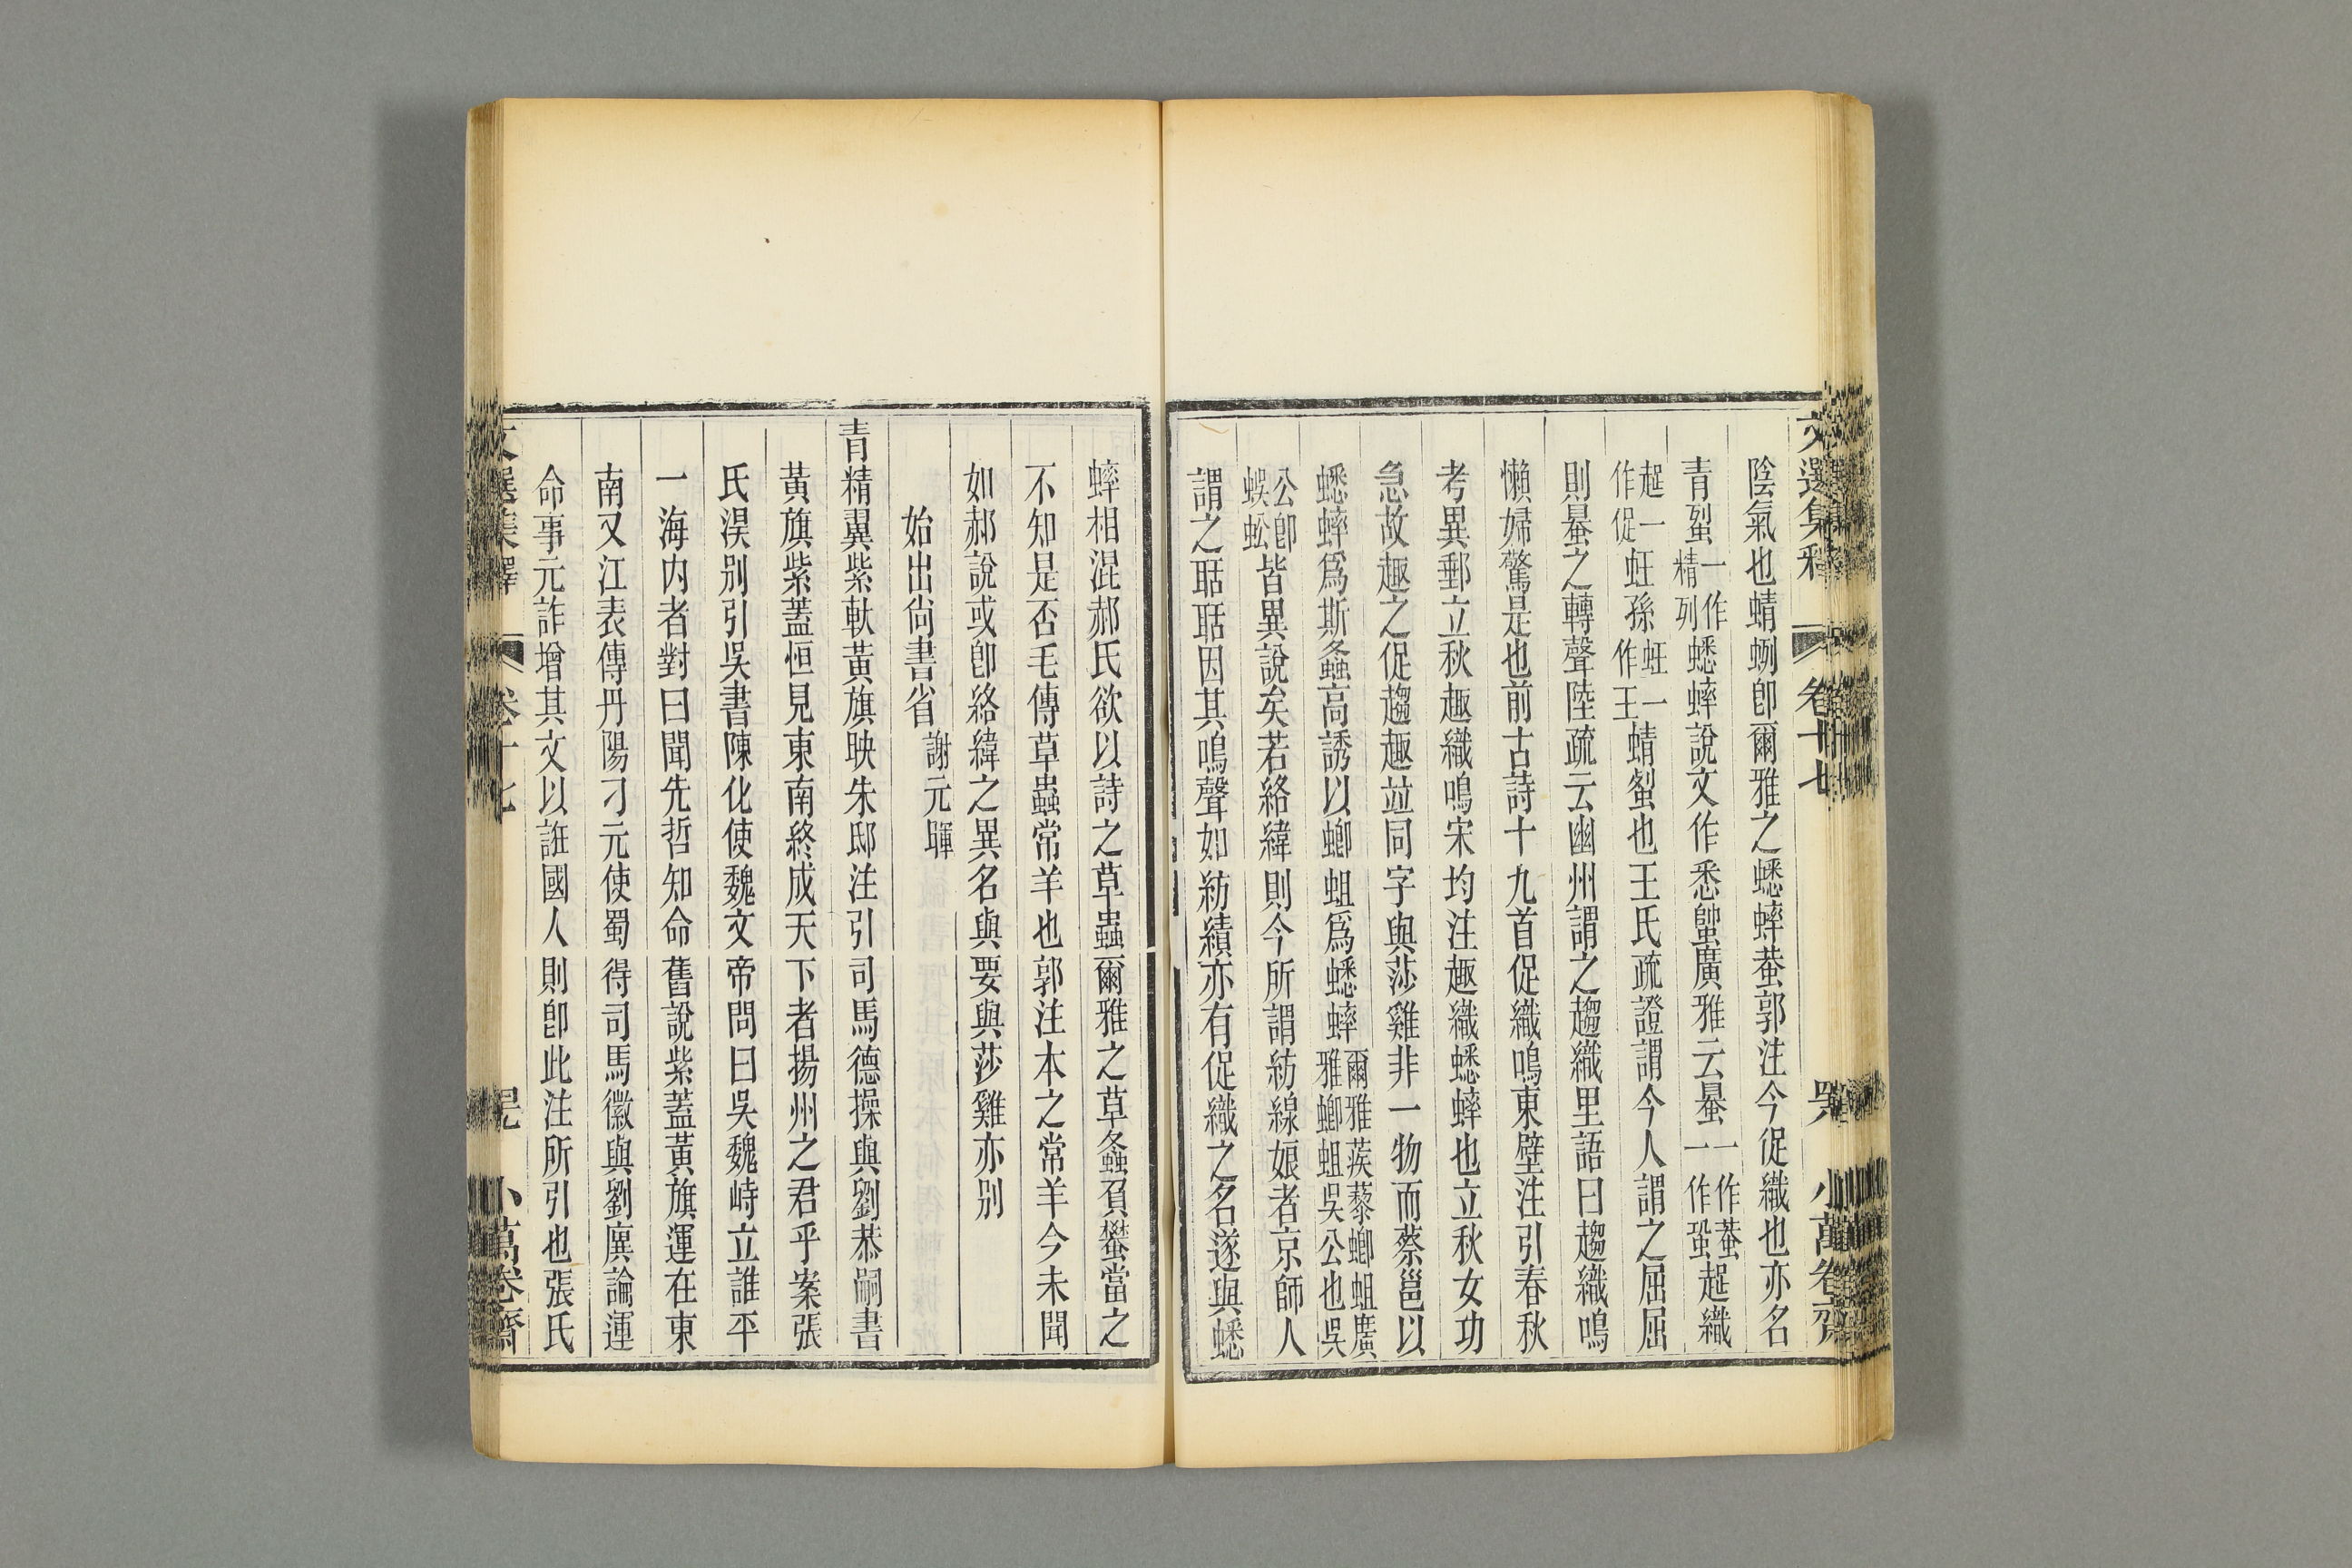 文選集釋 卷十七 小萬卷齋
陰氣也蜻蛚卽爾雅之蟋蟀蛬郭注今促織也亦名
青䖽一作精列蟋蟀說文作悉𧍓廣雅云蛬一作蛬一作蛩䞤織
䞤一作促蚟孫蚟一作王蜻𧊿也王氏疏證謂今人謂之屈屈
則蛬之轉聲陸疏云幽州謂之趨織里語曰趨織鳴
懶婦驚是也前古詩十九首促織鳴東壁注引春秋
考異郵立秋趣織鳴宋均注趣織蟋蟀也立秋女功
急故趣之促趨趣竝同字與莎雞非一物而蔡邕以
蟋蟀爲斯螽高誘以蝍蛆爲蟋蟀爾雅蒺藜蝍蛆廣雅蝍蛆吳公也吳
公卽蜈蚣皆異說矣若絡緯則今所謂紡線娘者京師人
謂之聒聒因其鳴聲如紡績亦有促織之名遂與蟋
蟀相混郝氏欲以詩之草蟲爾雅之草螽負蠜當之
不知是否毛傳草蟲常羊也郭注本之常羊今未聞
如郝說或卽絡緯之異名與要與莎雞亦別
始出尙書省 謝元暉
青精翼紫軑黃旗映朱邸注引司馬德操與劉恭嗣書
黃旗紫蓋恒見東南終成天下者揚州之君乎案張
氏溴別引吳書陳化使魏文帝問曰吳魏峙立誰平
一海內者對曰聞先哲知命舊說紫蓋黃旗運在東
南又江表傳丹陽刁元使蜀得司馬徽與劉廙論運
命事元詐增其文以誑國人則卽此注所引也張氏
文選集釋 卷十七 小萬卷齋